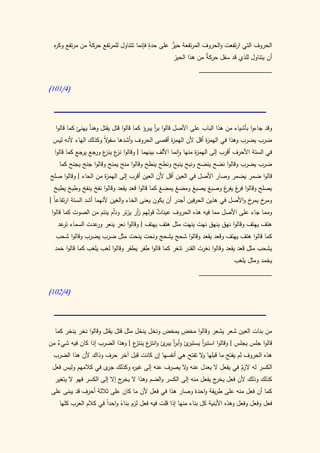 الحروف التي ارتفعت والحروف المرتفعة حيزٌ على حدةٍ فإنما تتناول للمرتفع حركةً من مرتفع وكره
أن يتناول للذي قد سفل حركةٌ من هذا الحيز
(101/4)
وقد جاءوا بأشياء من هذا الباب على الأصل قالوا برأ يبرؤ كما قالوا قتل يقتل وهنأ يهنئ كما قالوا
ضرب يضرب وهذا في الهمزة أقل لأن الهمزة أقصى الحروف وأشدها سفولاً وكذلك الهاء لأنه ليس
في الستة الأحرف أقرب إلى الهمزة منها وإنما الألف بينهما | وقالوا نزع ينزع ورجع يرجع كما قالوا
ضرب يضرب وقالوا نضح ينضح ونبح ينبح ونطح ينطح وقالوا منح يمنح وقالوا جنح يجنح كما
قالوا ضمر يضمر وصار الأصل في العين أقل لأن العين أقرب إلى الهمزة من الحاء | وقالوا صلح
يصلح وقالوا فرغ يفرغ وصبغ يصبغ ومضغ يمضغ كما قالوا قعد يقعد وقالوا نفخ ينفخ وطبخ يطبخ
ومرخ يمرخ والأصل في هذين الحرفين أجدر أن يكون يعنى الخاء والغين لأنهما أشد الستة ارتفاعاً |
ومما جاء على الأصل مما فيه هذه الحروف عيناتٌ قولهم زأر يزئر ونأم ينئم من الصوت كما قالوا
هتف يهتف وقالوا نهق ينهق نهت ينهت مثل هتف يهتف | وقالوا نعر ينعر ورعدت السماء ترعد
كما قالوا هتف يهتف وقعد يقعد وقالوا شحج يشحج ونحت ينحت مثل ضرب يضرب وقالوا شحب
يشحب مثل قعد يقعد وقالوا نغرت القدر تنغر كما قالوا طفر يطفر وقالوا لغب يلغب كما قالوا خمد
يخمد ومثل يلغب
(102/4)
من بنات العين شعر يشعر وقالوا مخض يمخض ونخل ينخل مثل قتل يقتل وقالوا نخر ينخر كما
قالوا جلس يجلس | وقالوا استبرأ يستبرئ وأبرأ يبرئ وانتزع ينتزع | وهذا الضرب إذا كان فيه شيءٌ من
هذه الحروف لم يفتح ما قبلها ولا تفتح هي أنفسها إن كانت قبل آخر حرف وذاك لأن هذا الضرب
الكسر له لازمٌ في يفعل لا يعدل عنه ولا يصرف عنه إلى غيره وكذلك جرى في كلامهم وليس فعل
كذلك وذلك لأن فعل يخرج يفعل منه إلى الكسر والضم وهذا لا يخرج إلا إلى الكسر فهو لا يتغير
كما أن فعل منه على طريقة واحدة وصار هذا في فعل لأن ما كان على ثلاثة أحرف قد يبنى على
فعل وفعل وفعل وهذه الأبنية كل بناء منها إذا قلت فيه فعل لزم بناءً واحداً في كلام العرب كلها